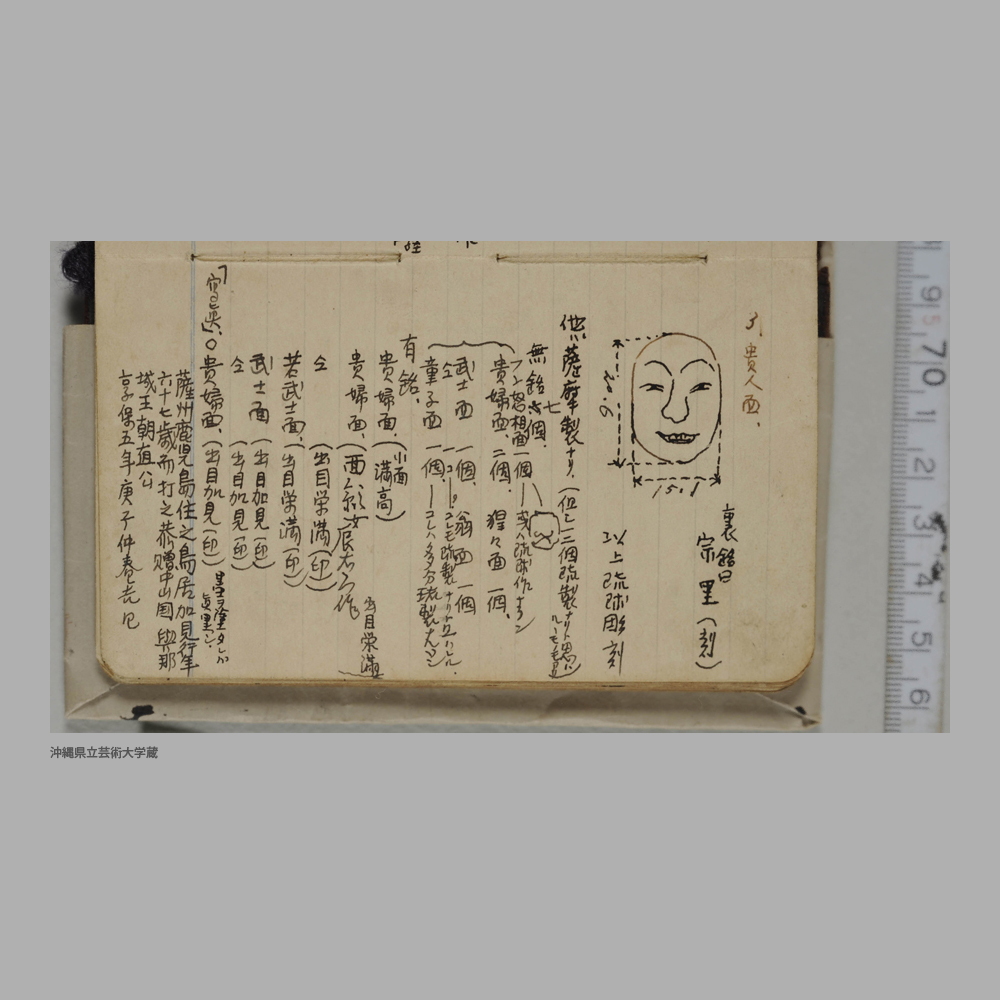 3, 貴人面、
裏銘曰
宗里(刻)
20.6
15.1
以上琉球彫刻
他、薩摩製ナリ、(但シ一二個琉製ナリト思ハルヽモノモアリ)
無銘 七個、
怒相面一個 或ハ琉球作ナラン
貴婦面、二個、猩々面一個、
武士面一個、翁面一個
仝 一コ コレモ琉製ナリト云ハル、
童子面一個、コレハ多分琉製ナランン
有銘、
貴婦面、(小面 満高)
貴婦面、
出目栄満
仝 (出目栄満(印))
若武士面、(出目栄満(印))
武士面 (出目加見(印))
仝 (出目加見(印))
貴婦面、(出目加見(印))
薩州鹿児島住之島居加見行年
六十七歳而打之恭贈中山国與那
城王朝直公
享保五年庚子仲春吉日
9 5 70 1 2 3 4 5 6
沖縄県立芸術大学蔵